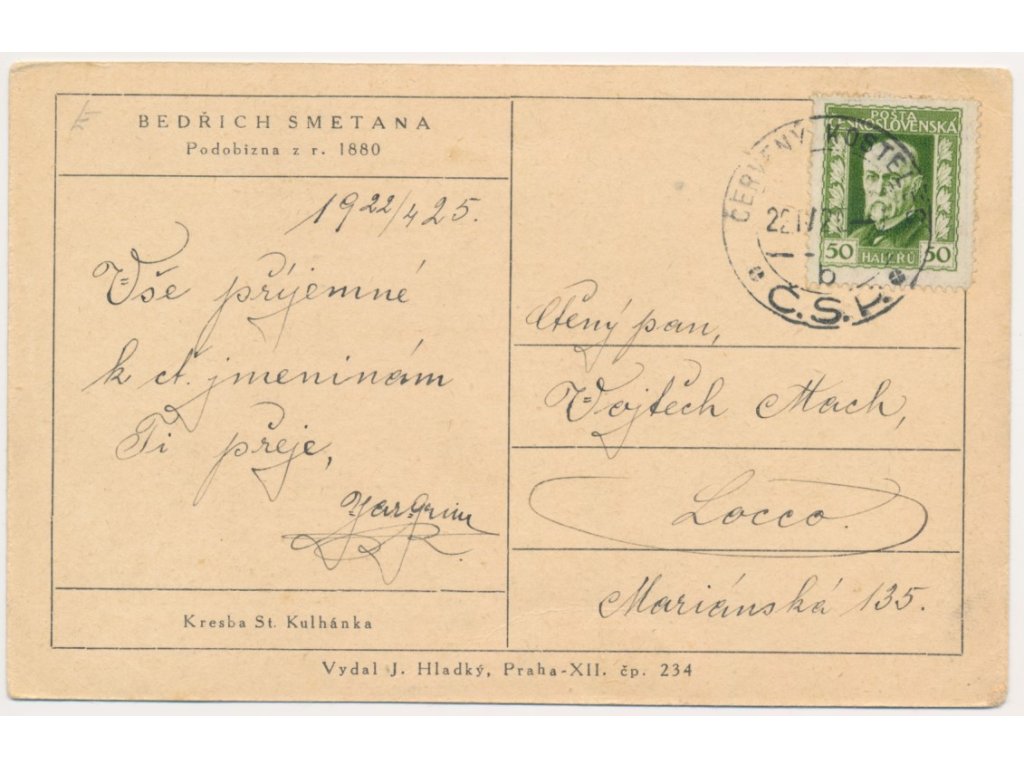 BEDŘICH SMETANA
Podobizna z r. 1880
1922/4 25.
Vše příjemné
k ct. jmeninám
Ti přeje,
Jar. Grim
Kresba St. Kulhánka
POŠTA
ČESKOSLOVENSKÁ
50 HALÉŘŮ 50
ČERVENÝ KOSTELEC
22.IV
b
Č.S.P.
Ctěný pan,
Vojtěch Mach,
Locco.
Mariánská 135.
Vydal J. Hladký, Praha-XII. čp. 234